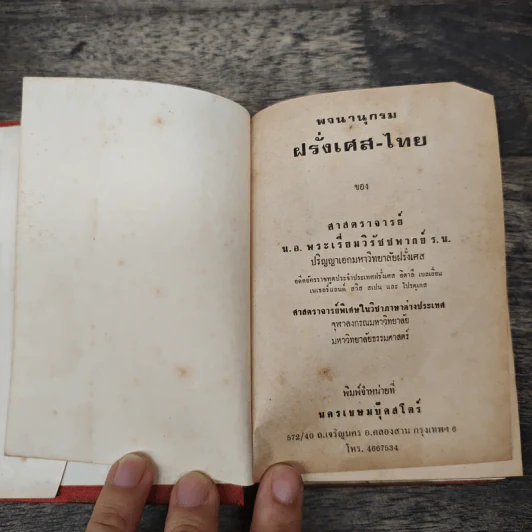 พจนานุกรม
ฝรั่งเศส-ไทย
ของ
ศาสตราจารย์
น.อ. พระเรี่ยมวิรัชชพากย์ ร.น.
ปริญญาเอกมหาวิทยาลัยฝรั่งเศส
อดีตอัครราชทูตประจำประเทศฝรั่งเศส อิตาลี เบลเยี่ยม
เนเธอร์แลนด์ สวิส สเปน และ โปรตุเกส
ศาสตราจารย์พิเศษในวิชาภาษาต่างประเทศ
จุฬาลงกรณมหาวิทยาลัย
มหาวิทยาลัยธรรมศาสตร์
พิมพ์จำหน่ายที่
นครเขษมบุ๊คสโตร์
572/40 ถ.เจริญนคร อ.คลองสาน กรุงเทพฯ 6
โทร. 4667534